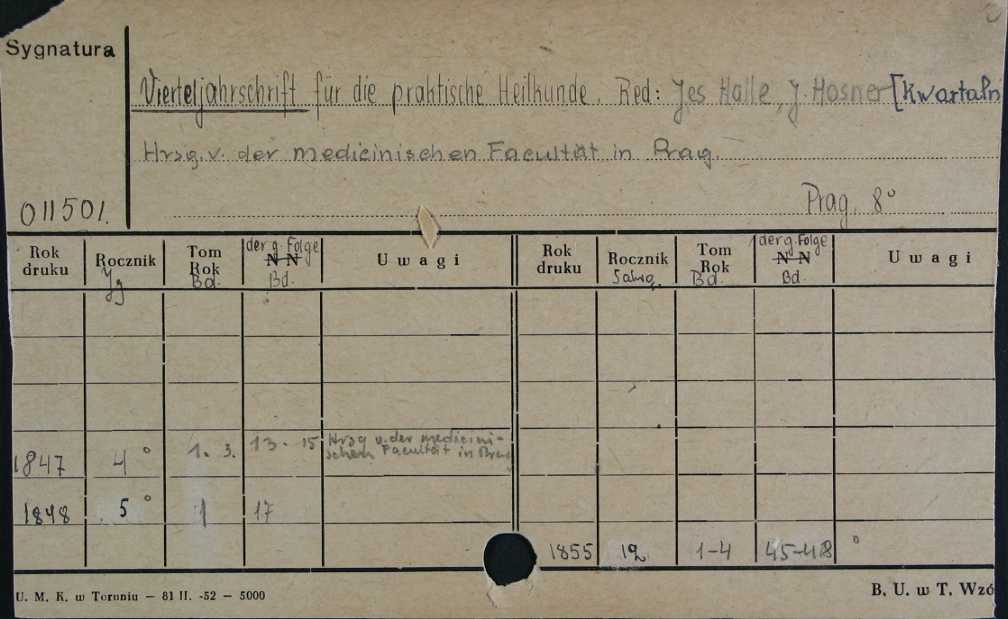 Sygnatura
Vierteljahrschrift für die praktische Heilkunde. Red: Jes Halle, J. Hosner [Kwartaln
Hrsg. v. der medicinischen Facultät in Prag.
011501.
Prag. 8°
Rok druku Rocznik Jg Tom Rok Bd. der g. Folge N N Bd. Uwagi Rok druku Rocznik Tom Rok Bd. der g. Folge N N Bd. Uwagi
1847 4° 1. 3. 13. 15 Hrsg v. der medicini-
schen Facultät in Prag
1848 5° 1 17
1855 12 1-4 45-48 °
U. M. K. w Toruniu – 81 II. -52 – 5000
B. U. w T. Wzó